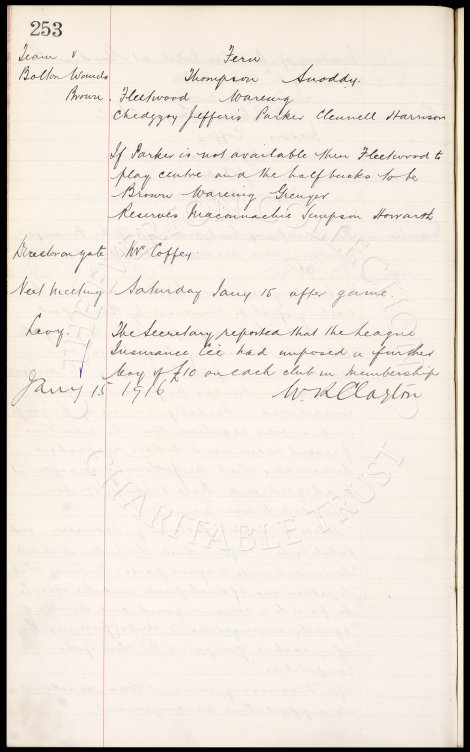 253
Team v Fern
Bolton Wands Thompson Snoddy.
Brown. Fleetwood Wareing
Chedgzoy Jefferis Parker Clennell Harrison
If Parker is not available then Fleetwood to
play centre and the halfbacks to be
Brown Wareing Grenyer
Reserves Maconnachie Simpson Howarth
Director on gate Mr Coffey.
Next Meeting Saturday Jany 15 after game.
Levy. The Secretary reported that the League
Insurance Cee had imposed a further
levy of £10 on each club in membership
Jany 15 1916 W. R. Clayton
CHARITABLE TRUST